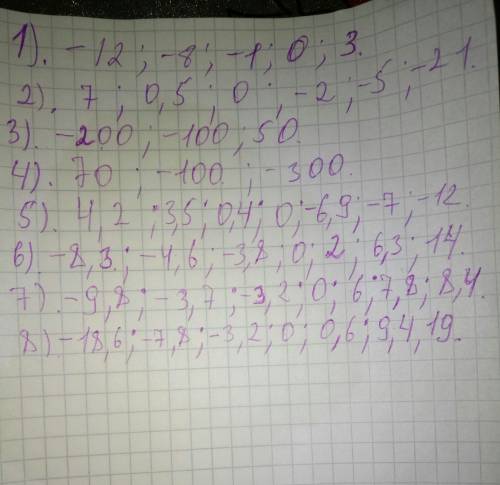 1). -12; -8; -1; 0; 3.
2). 7; 0,5; 0; -2; -5; -21.
3). -200; -100; 50.
4). 70; -100; -300.
5). 4,2; 3,5; 0,4; 0; -6,9; -7; -12.
6) -8,3; -4,6; -3,8; 0; 2; 6,3; 14.
7). -9,8; -3,7; -3,2; 0; 6; 7,8; 8,4.
8). -18,6; -7,8; -3,2; 0; 0,6; 9,4, 19.